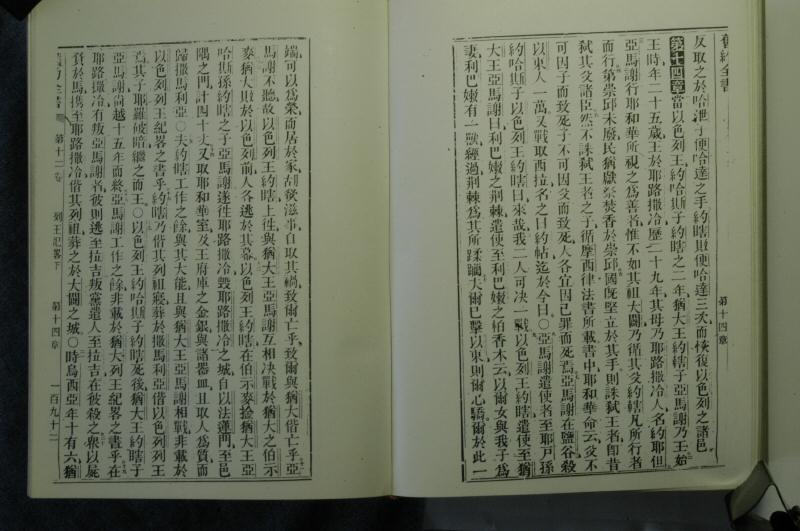 舊約全書
第十四章
反取之於哈泄子便哈達之手約轄敗便哈達三次而恢復以色列之諸邑
第十四章當以色列王約哈斯子約轄之二年猶大王約轄子亞馬謝乃王始
王時年二十五歲王於耶路撒冷歷二十九年其母乃耶路撒冷人名約耶但
亞馬謝行耶和華所視之為善者惟不如其祖大闢乃循其父約轄凡所行者
而行第崇邱未廢民猶獻祭焚香於崇邱國既堅立於其手則誅弒王者即昔
弒其父諸臣然不誅弒王者之子循摩西律法書所載書中耶和華命云父不
可因子而致死子不可因父而致死人各宜因己罪而死焉亞馬謝在鹽谷殺
以東人一萬又戰取西拉名之曰約帖迄於今日〇亞馬謝遣使者至耶戶孫
約哈斯子以色列王約轄曰來哉我二人可決一戰以色列王約轄遣使至猶
大王亞馬謝曰利巴嫩之荊棘遣使至利巴嫩之柏香木云以爾女與我子為
妻利巴嫩有一獸經過荊棘為其所蹂躪大爾已擊以東則爾心驕爾於此一
端可以為榮而居於家胡欲滋事自取其禍致爾亡乎致爾與猶大偕亡乎亞
馬謝不聽故以色列王約轄上往與猶大王亞馬謝互相決戰於猶大之伯示
麥猶大敗於以色列前人各逃於其幕以色列王約轄在伯示麥擒猶大王亞
哈斯孫約轄之子亞馬謝遂往耶路撒冷毀耶路撒冷之城自以法蓮門至邑
隅之門計四十丈又取耶和華室及王府庫之金銀與諸器皿且取人為質而
歸撒馬利亞〇夫約轄工作之餘與其大能且與猶大王亞馬謝相戰非載於
以色列列王紀畧之書乎約轄乃偕其列祖寢葬於撒馬利亞偕以色列列王
焉其子耶羅破暗繼之而王〇以色列王約哈斯子約轄死後猶大王約轄子
亞馬謝尚越十五年而終亞馬謝工作之餘非載於猶大列王紀畧之書乎在
耶路撒冷有叛亞馬謝者彼則逃至拉吉叛黨遣人至拉吉在彼殺之眾以屍
負於馬攜至耶路撒冷偕其列祖葬之於大闢之城〇時烏西亞年十有六猶
第十二卷
列王紀畧下
第十四章
一百九十二